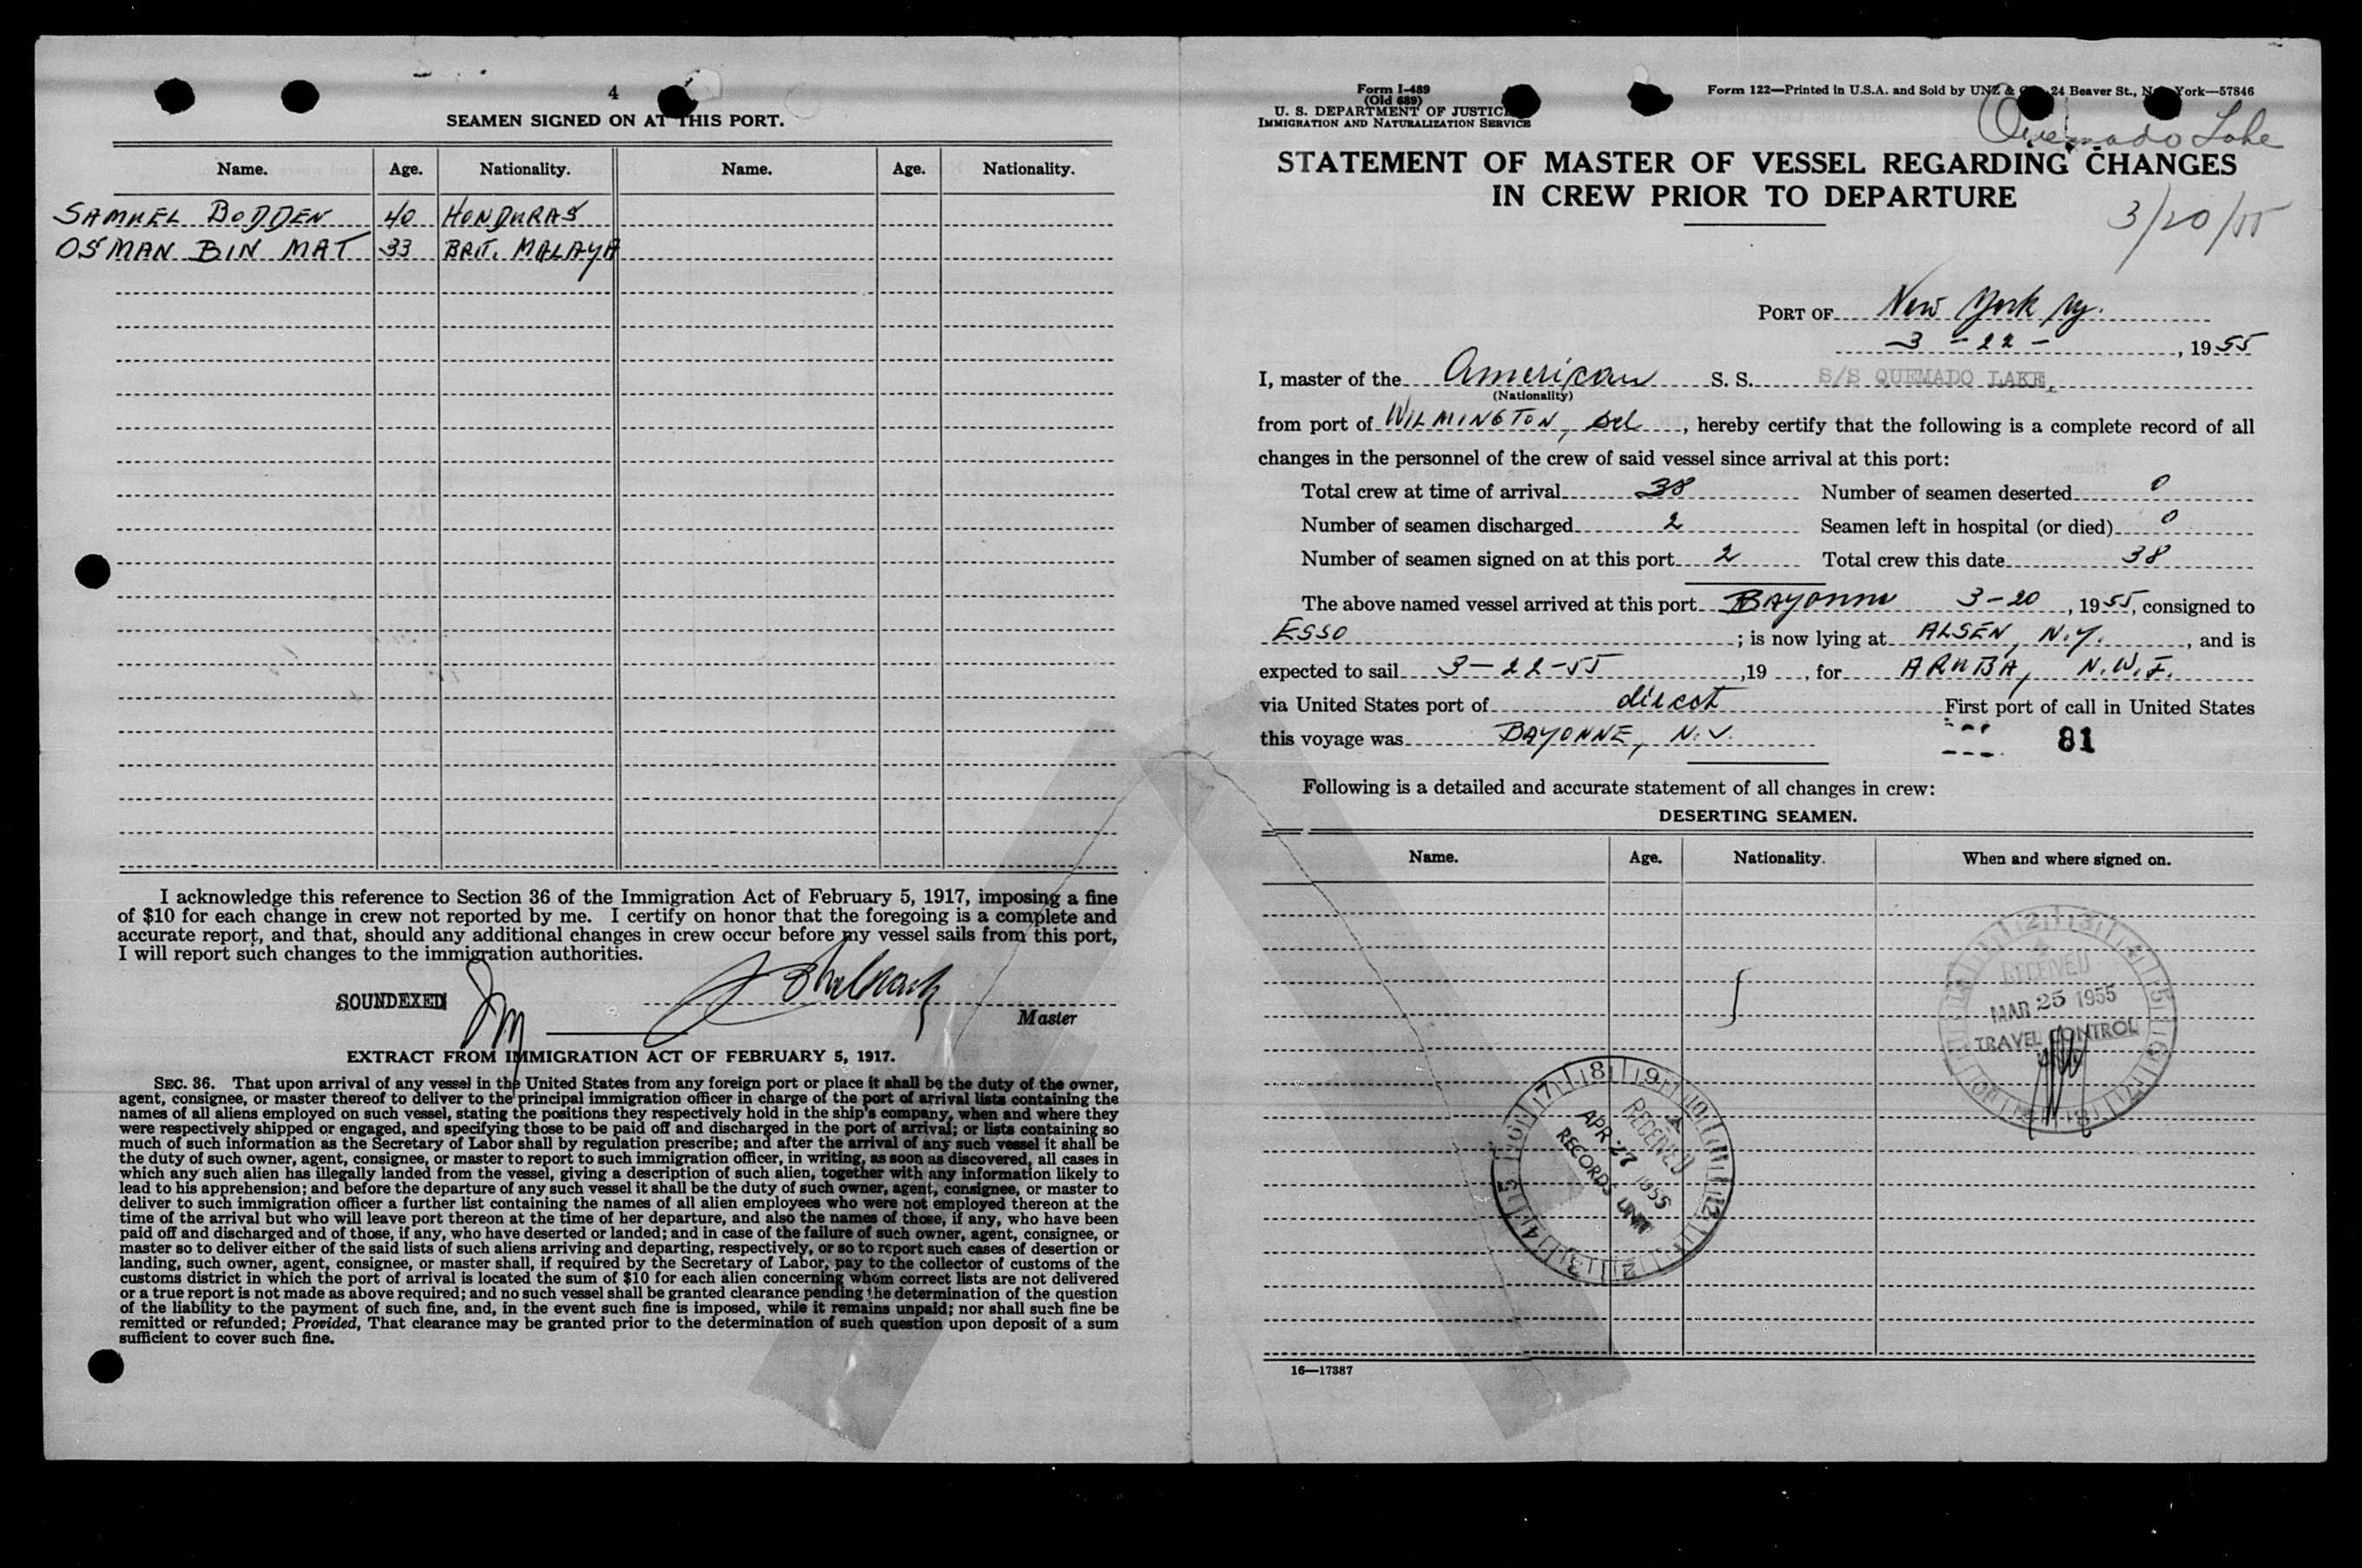 4
SEAMEN SIGNED ON AT THIS PORT.
Name. Age. Nationality. Name. Age. Nationality.
SAMUEL BODDEN 40 HONDURAS
OSMAN BIN MAT 33 BRIT. MALAYA
I acknowledge this reference to Section 36 of the Immigration Act of February 5, 1917, imposing a fine
of $10 for each change in crew not reported by me. I certify on honor that the foregoing is a complete and
accurate report, and that, should any additional changes in crew occur before my vessel sails from this port,
I will report such changes to the immigration authorities.
SOUNDEXED
Master
EXTRACT FROM IMMIGRATION ACT OF FEBRUARY 5, 1917.
SEC. 36. That upon arrival of any vessel in the United States from any foreign port or place it shall be the duty of the owner,
agent, consignee, or master thereof to deliver to the principal immigration officer in charge of the port of arrival lists containing the
names of all aliens employed on such vessel, stating the positions they respectively hold in the ship's company, when and where they
were respectively shipped or engaged, and specifying those to be paid off and discharged in the port of arrival; or lists containing so
much of such information as the Secretary of Labor shall by regulation prescribe; and after the arrival of any such vessel it shall be
the duty of such owner, agent, consignee, or master to report to such immigration officer, in writing, as soon as discovered, all cases in
which any such alien has illegally landed from the vessel, giving a description of such alien, together with any information likely to
lead to his apprehension; and before the departure of any such vessel it shall be the duty of such owner, agent, consignee, or master to
deliver to such immigration officer a further list containing the names of all alien employees who were not employed thereon at the
time of the arrival but who will leave port thereon at the time of her departure, and also the names of those, if any, who have been
paid off and discharged and of those, if any, who have deserted or landed; and in case of the failure of such owner, agent, consignee, or
master so to deliver either of the said lists of such aliens arriving and departing, respectively, or so to report such cases of desertion or
landing, such owner, agent, consignee, or master shall, if required by the Secretary of Labor, pay to the collector of customs of the
customs district in which the port of arrival is located the sum of $10 for each alien concerning whom correct lists are not delivered
or a true report is not made as above required; and no such vessel shall be granted clearance pending the determination of the question
of the liability to the payment of such fine, and, in the event such fine is imposed, while it remains unpaid; nor shall such fine be
remitted or refunded; Provided, That clearance may be granted prior to the determination of such question upon deposit of a sum
sufficient to cover such fine.
Form I-489
(Old 689)
U. S. DEPARTMENT OF JUSTICE
IMMIGRATION AND NATURALIZATION SERVICE
Form 122—Printed in U.S.A. and Sold by UNZ & 24 Beaver St., New York—57846
Quemado Lake
STATEMENT OF MASTER OF VESSEL REGARDING CHANGES
IN CREW PRIOR TO DEPARTURE
3/20/55
PORT OF New York Ny.
3-22-, 1955
I, master of the American S. S. S/S QUEMADO LAKE,
(Nationality)
from port of WILMINGTON, Del, hereby certify that the following is a complete record of all
changes in the personnel of the crew of said vessel since arrival at this port:
Total crew at time of arrival 38 Number of seamen deserted 0
Number of seamen discharged 2 Seamen left in hospital (or died) 0
Number of seamen signed on at this port 2 Total crew this date 38
The above named vessel arrived at this port Bayonne 3-20, 1955, consigned to
ESSO; is now lying at ALSEN, N.Y., and is
expected to sail 3-22-55, 19, for ARUBA, N.W.I.
via United States port of direct First port of call in United States
this voyage was BAYONNE, N.J.
81
Following is a detailed and accurate statement of all changes in crew:
DESERTING SEAMEN.
Name. Age. Nationality. When and where signed on.
RECEIVED
MAR 25 1955
TRAVEL CONTROL
RECEIVED
APR 27 1955
RECORDS UNIT
16—17387